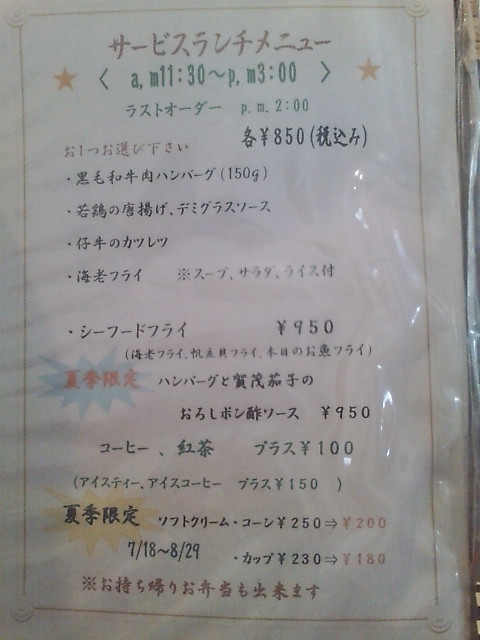 サービスランチメニュー
〈 a,m11:30～p,m3:00 〉
ラストオーダー p.m.2:00
各￥850(税込み)
お1つお選び下さい
・黒毛和牛肉ハンバーグ(150g)
・若鶏の唐揚げ、デミグラスソース
・仔牛のカツレツ
・海老フライ ※スープ、サラダ、ライス付
・シーフードフライ ￥950
(海老フライ、帆立貝フライ、本日のお魚フライ)
夏季限定 ハンバーグと賀茂茄子の
おろしポン酢ソース ￥950
コーヒー 、紅茶 プラス￥100
(アイスティー、アイスコーヒー プラス￥150 )
夏季限定 ソフトクリーム・コーン￥250⇒￥200
7/18～8/29 ・カップ￥230⇒￥180
※お持ち帰りお弁当も出来ます